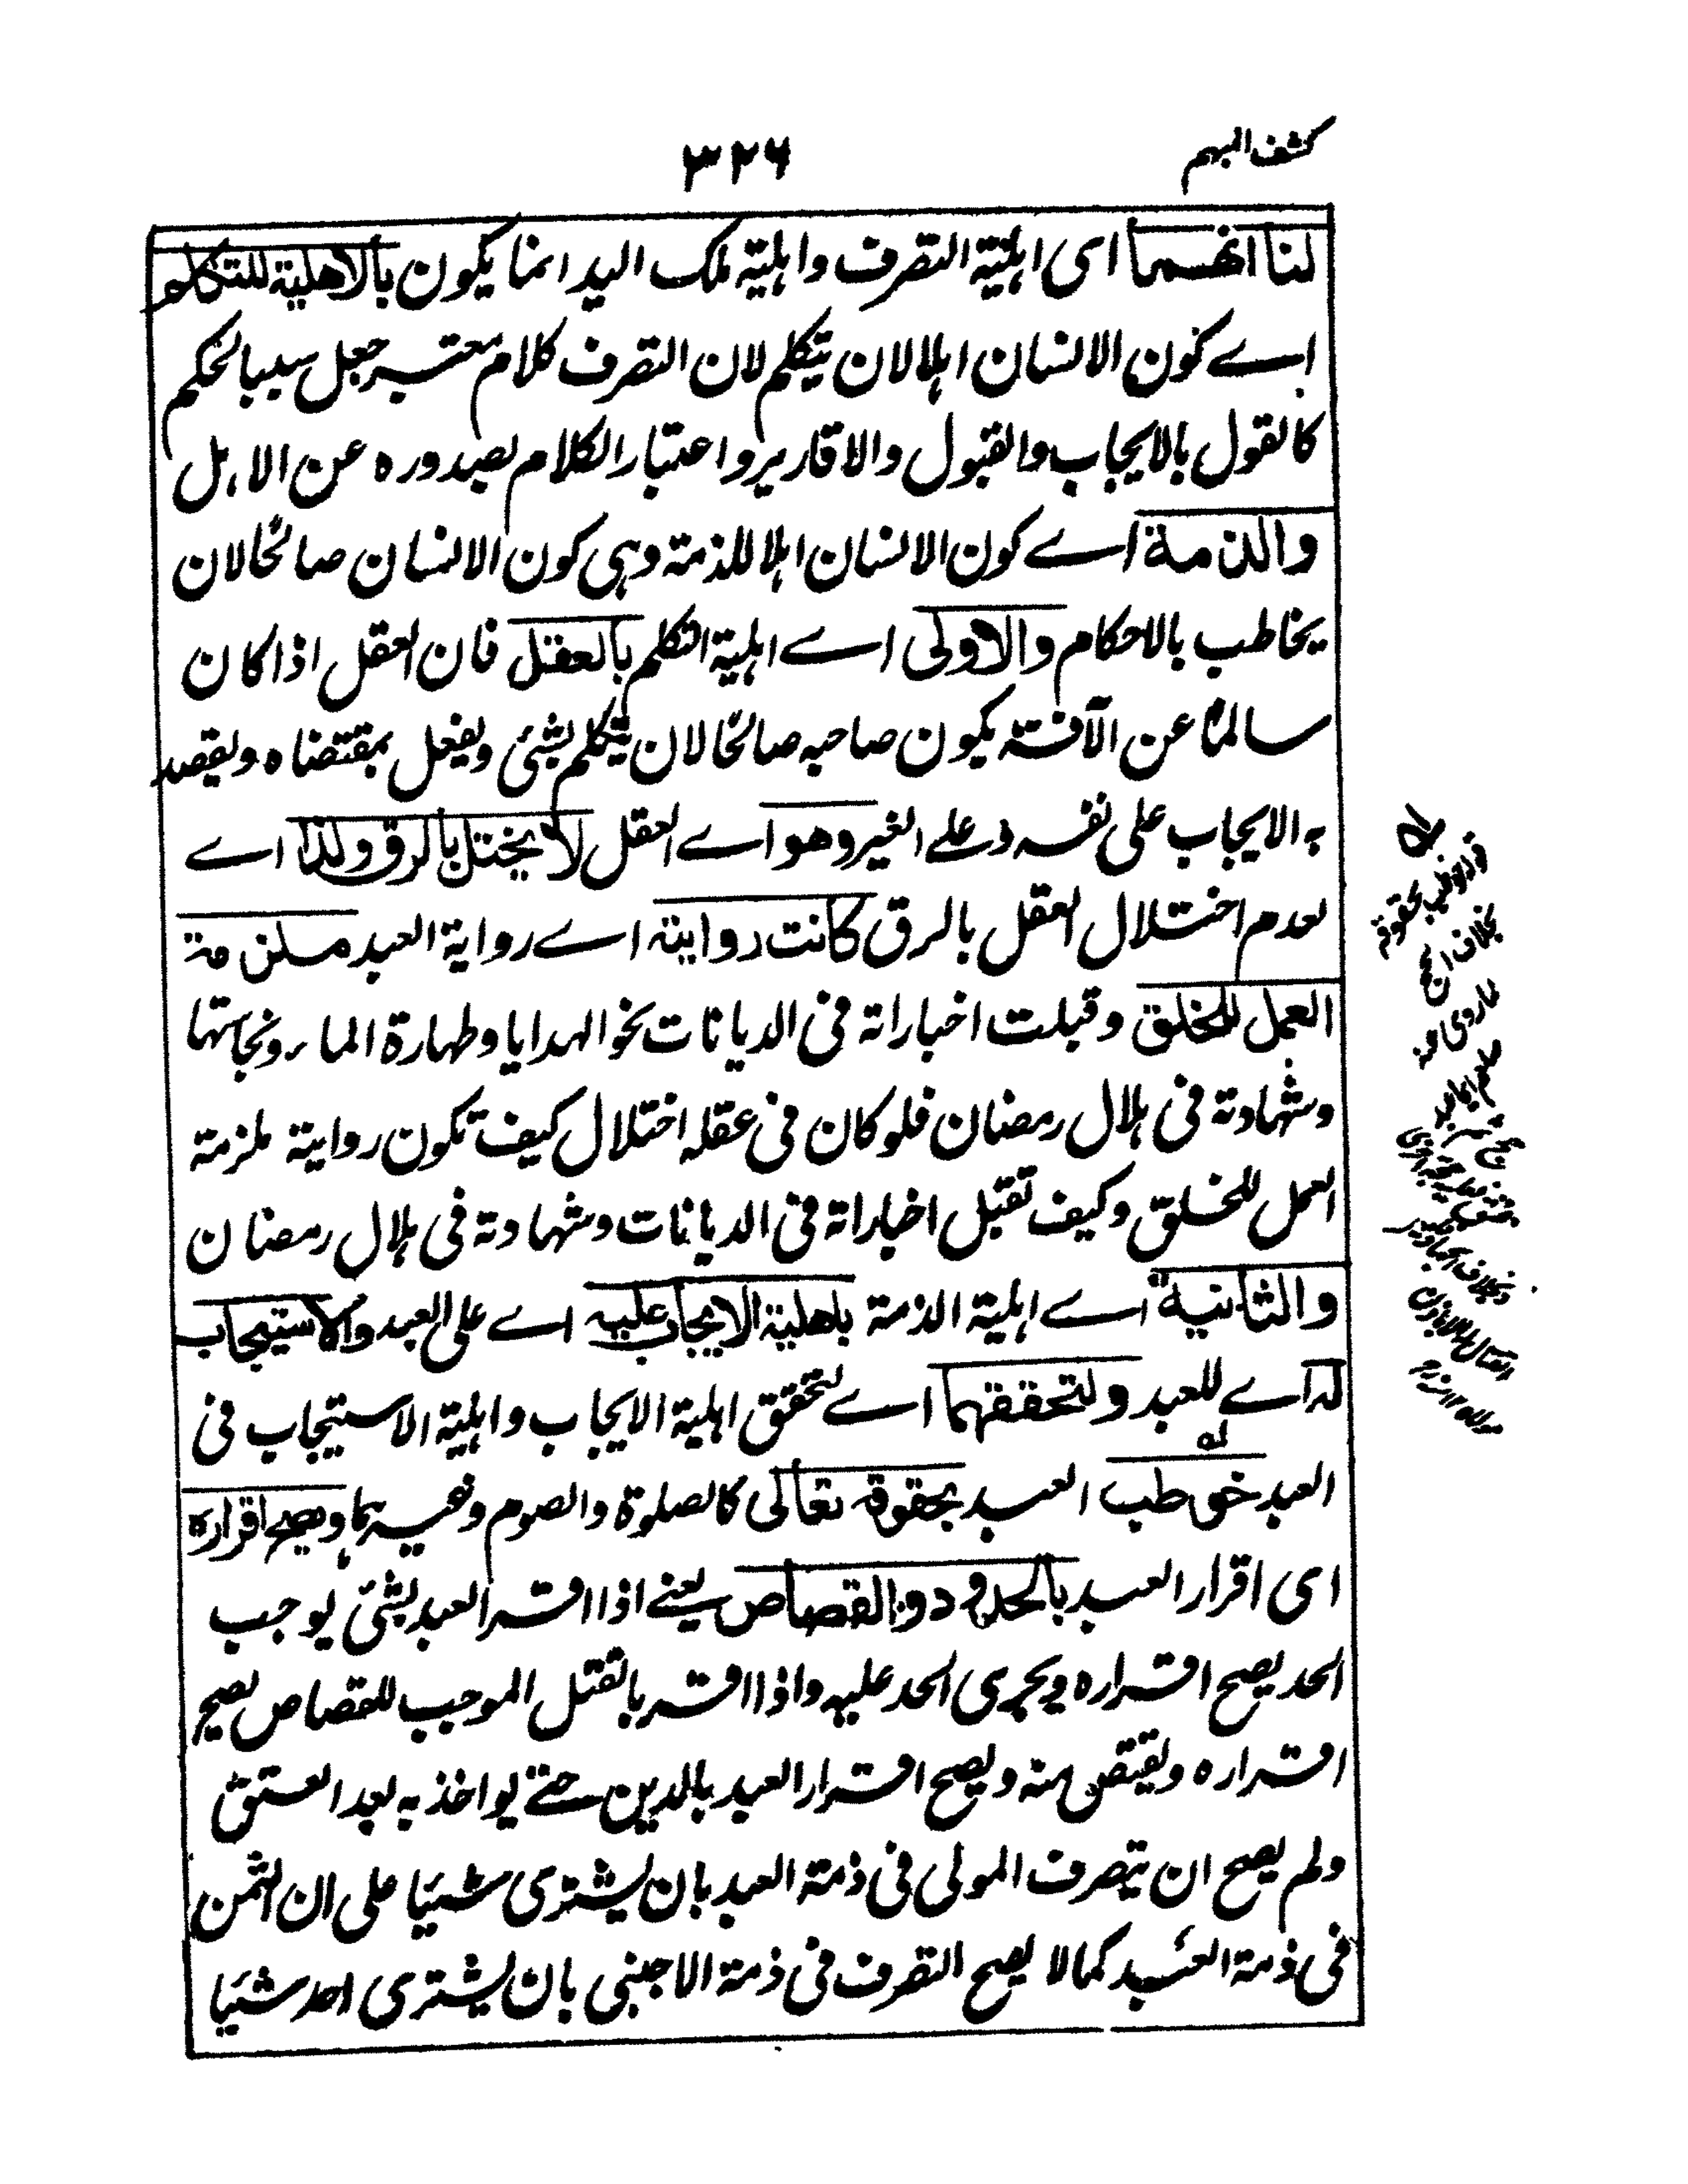 كشف المبهم
٣٢٦
لنا انهما اى اهلية التصرف واهلية ملك اليد انما يكون بالاهلية للتكلم
اے كون الانسان اہلا لان يتكلم لان التصرف كلام معتبر جعل سببا لحكم
كالقول بالايجاب والقبول والاقارير واعتبار الكلام بصدوره عن الاہل
والذمة اے كون الانسان اہلا للذمة وہى كون الانسان صالحًا لان
يخاطب بالاحكام والاولى اے اہلية التكلم بالعقل فان العقل اذا كان
سالمًا عن الآفة يكون صاحبه صالحًا لان يتكلم بشئ ويفعل بمقتضاه ويقصد
به الايجاب على نفسه وعلے الغير وهو اے العقل لا يختل بالرق ولذا اے
لعدم اختلال العقل بالرق كانت روايته اے رواية العبد ملزمة
العمل للخلق وقبلت اخباراته فى الديانات نحو الهدايا وطهارة الماء ونجاستها
وشهادته فى ہلال رمضان فلو كان فى عقله اختلال كيف تكون روايته ملزمة
العمل للخلق وكيف تقبل اخباراته فى الديانات وشهادته فى ہلال رمضان
والثانية اے اہلية الذمة باهلية الايجاب عليه اے على العبد والاستيجاب
له اے للعبد ولتحققهما اے لتحقق اہلية الايجاب واہلية الاستيجاب فى
العبد خوطب العبد بحقوقه تعالى كالصلوة والصوم وغيرہما ويصح اقراره
اى اقرار العبد بالحدود والقصاص يعنے اذا اقر العبد بشئ يوجب
الحد يصح اقراره ويجرى الحد عليه واذا اقر بالقتل الموجب للقصاص يصح
اقراره ويقتص منه ويصح اقرار العبد بالدين حتے يواخذ به بعد العتق
ولم يصح ان يتصرف المولى فى ذمة العبد بان يشترى شيئا على ان الثمن
فى ذمة العبد كما لا يصح التصرف فى ذمة الاجنبى بان يشترى احد شيئا
له
قوله خوطب بحقوقه
بخلاف